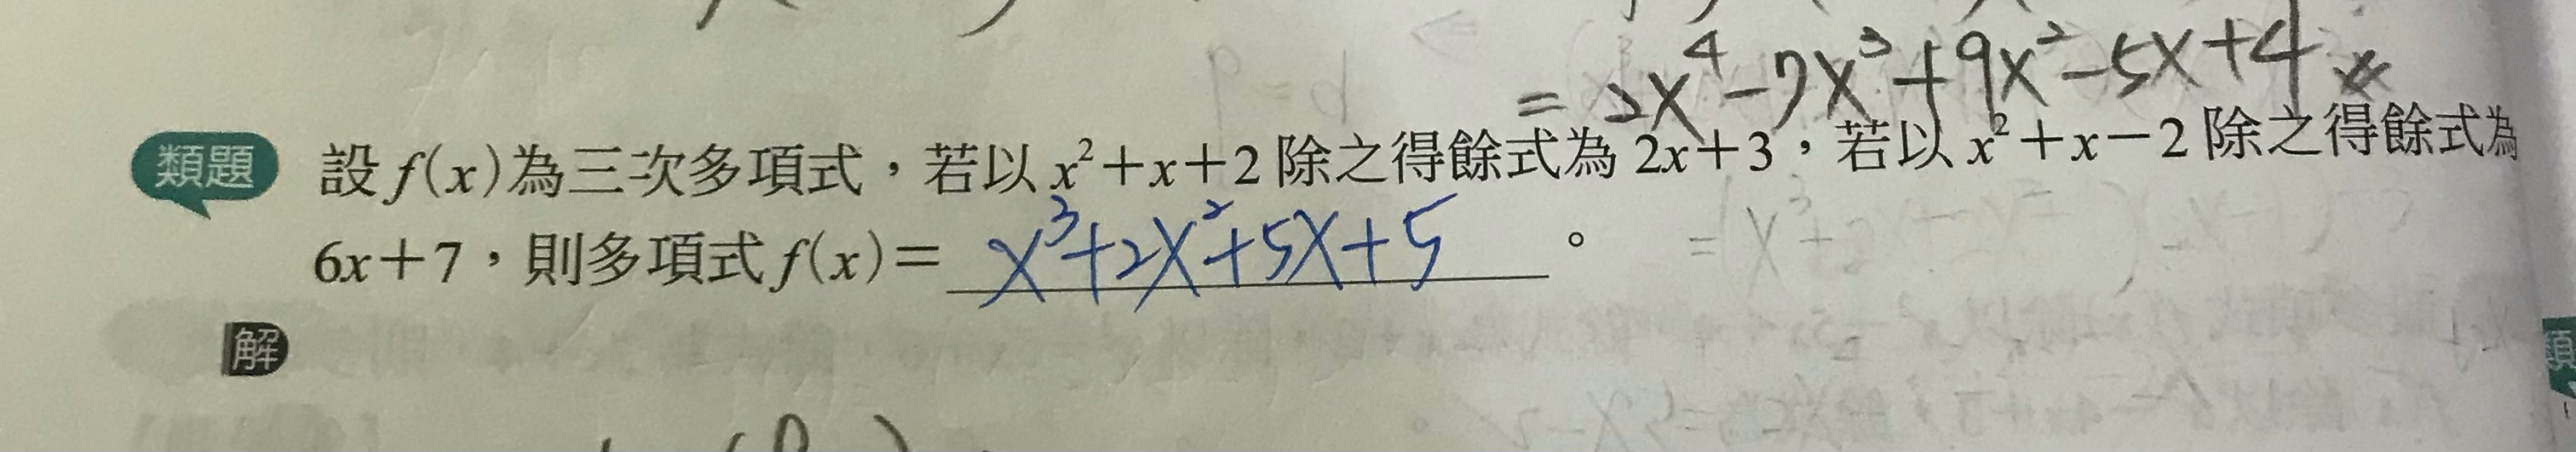 = 2x⁴-7x³+9x²-5x+4
類題 設 f(x)為三次多項式，若以 x²+x+2 除之得餘式為 2x+3，若以 x²+x-2 除之得餘式為
6x+7，則多項式 f(x)= x³+2x²+5x+5 。
解
類